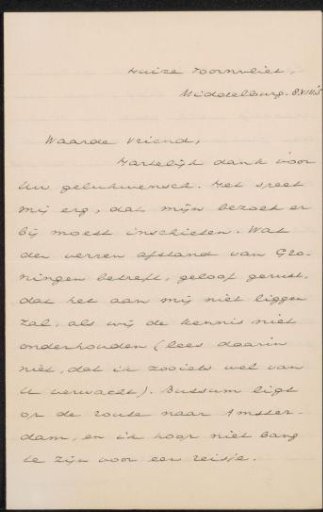 Huize Toornvliet,
Middelburg.
Waarde Vriend,
Hartelijk dank voor
Uw gelukwensch. Het speet
mij erg, dat mijn bezoek er
bij moest inschieten. Wat
den verren afstand van Gro-
ningen betreft, geloof gerust,
dat het aan mij niet liggen
zal, als wij de kennis niet
onderhouden (lees daarin
niet, dat ik zooiets wel van
U verwacht). Bussum ligt
op de route naar Amster-
dam, en ik hoop niet bang
te zijn voor een reisje.